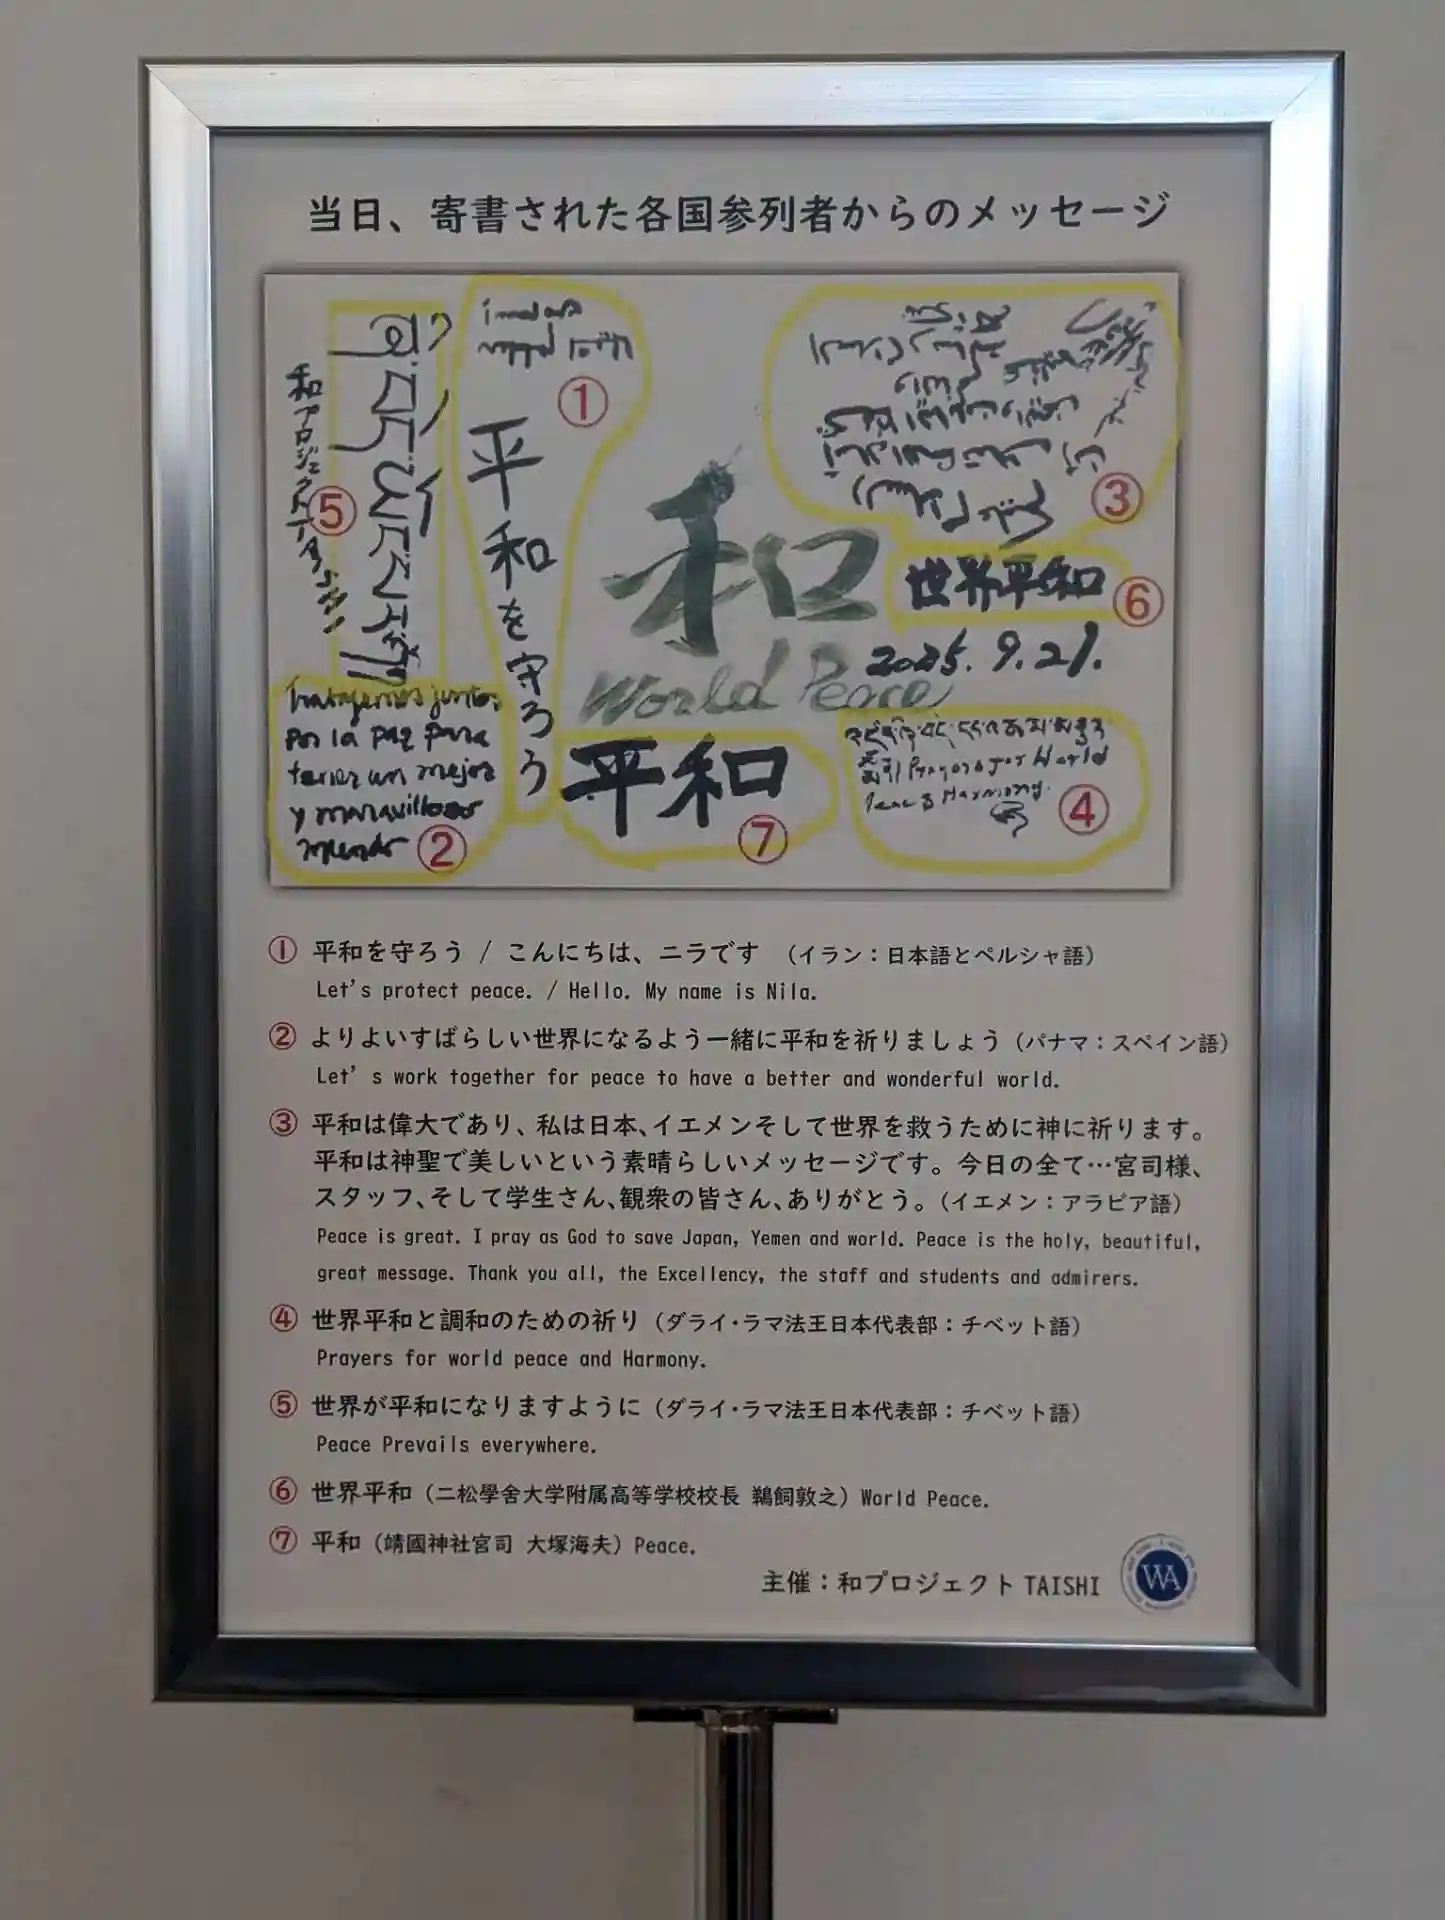 当日、寄書された各国参列者からのメッセージ
平和を守ろう
①
③
和プロジェクト
⑤
和
World Peace
世界平和
⑥
2025.9.21.
Trabajemos juntos
por la paz para
tener un mejor
y maravilloso
mundo
②
平和
⑦
Prayers for World
Peace & Harmony.
④
① 平和を守ろう / こんにちは、ニラです （イラン：日本語とペルシャ語）
Let's protect peace. / Hello. My name is Nila.
② よりよいすばらしい世界になるよう一緒に平和を祈りましょう（パナマ：スペイン語）
Let's work together for peace to have a better and wonderful world.
③ 平和は偉大であり、私は日本、イエメンそして世界を救うために神に祈ります。
平和は神聖で美しいという素晴らしいメッセージです。今日の全て…宮司様、
スタッフ、そして学生さん、観衆の皆さん、ありがとう。（イエメン：アラビア語）
Peace is great. I pray as God to save Japan, Yemen and world. Peace is the holy, beautiful,
great message. Thank you all, the Excellency, the staff and students and admirers.
④ 世界平和と調和のための祈り（ダライ・ラマ法王日本代表部：チベット語）
Prayers for world peace and Harmony.
⑤ 世界が平和になりますように（ダライ・ラマ法王日本代表部：チベット語）
Peace Prevails everywhere.
⑥ 世界平和（二松學舎大学附属高等学校校長 鵜飼敦之）World Peace.
⑦ 平和（靖國神社宮司 大塚海夫）Peace.
主催：和プロジェクト TAISHI
WA